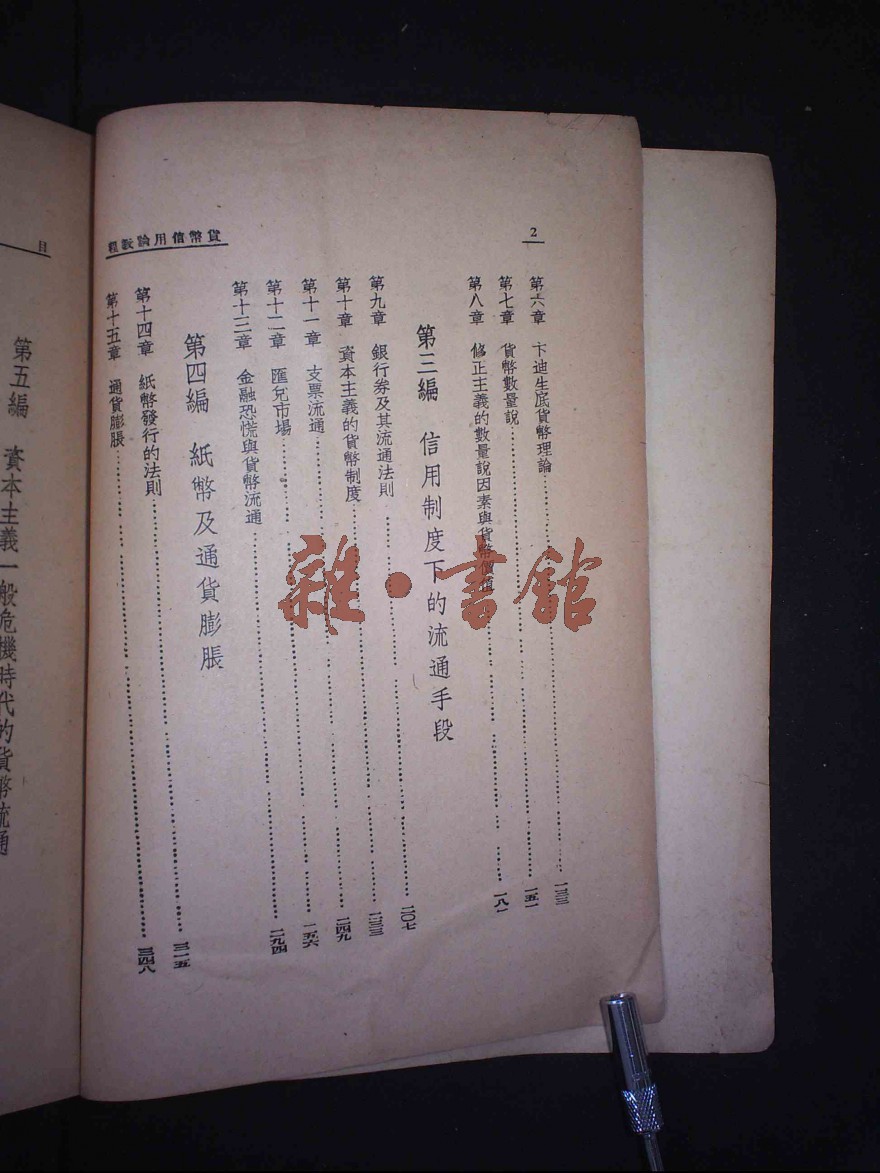 2
貨幣信用論敎程
第六章 卞迪生底貨幣理論 一三三
第七章 貨幣數量說 一五一
第八章 修正主義的數量說因素與貨幣價值 一八一
第三編 信用制度下的流通手段
第九章 銀行券及其流通法則 二〇七
第十章 資本主義的貨幣制度 二三三
第十一章 支票流通 二四九
第十二章 匯兌市場 一五六
第十三章 金融恐慌與貨幣流通 二九四
第四編 紙幣及通貨膨脹
第十四章 紙幣發行的法則 三一五
第十五章 通貨膨脹 三四八
目
第五編 資本主義一般危機時代的貨幣流通
雜·書館